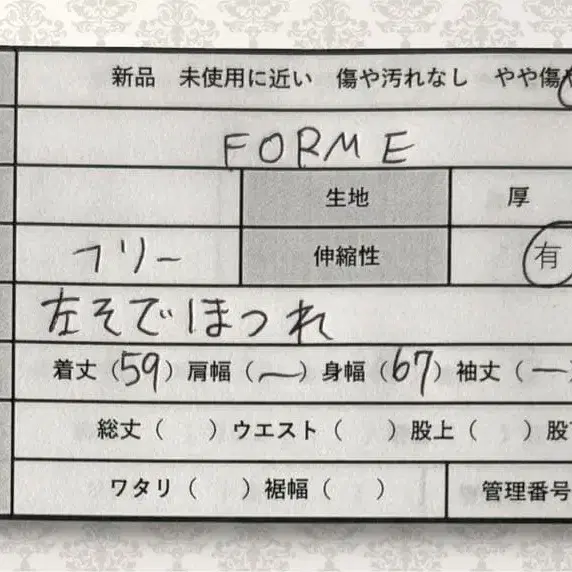 新品 未使用に近い 傷や汚れなし やや傷
FORME
生地 厚
フリー 伸縮性 有
左そでほつれ
着丈(59)肩幅(ー)身幅(67)袖丈(ー
総丈( )ウエスト( )股上( )股
ワタリ( )裾幅( ) 管理番号